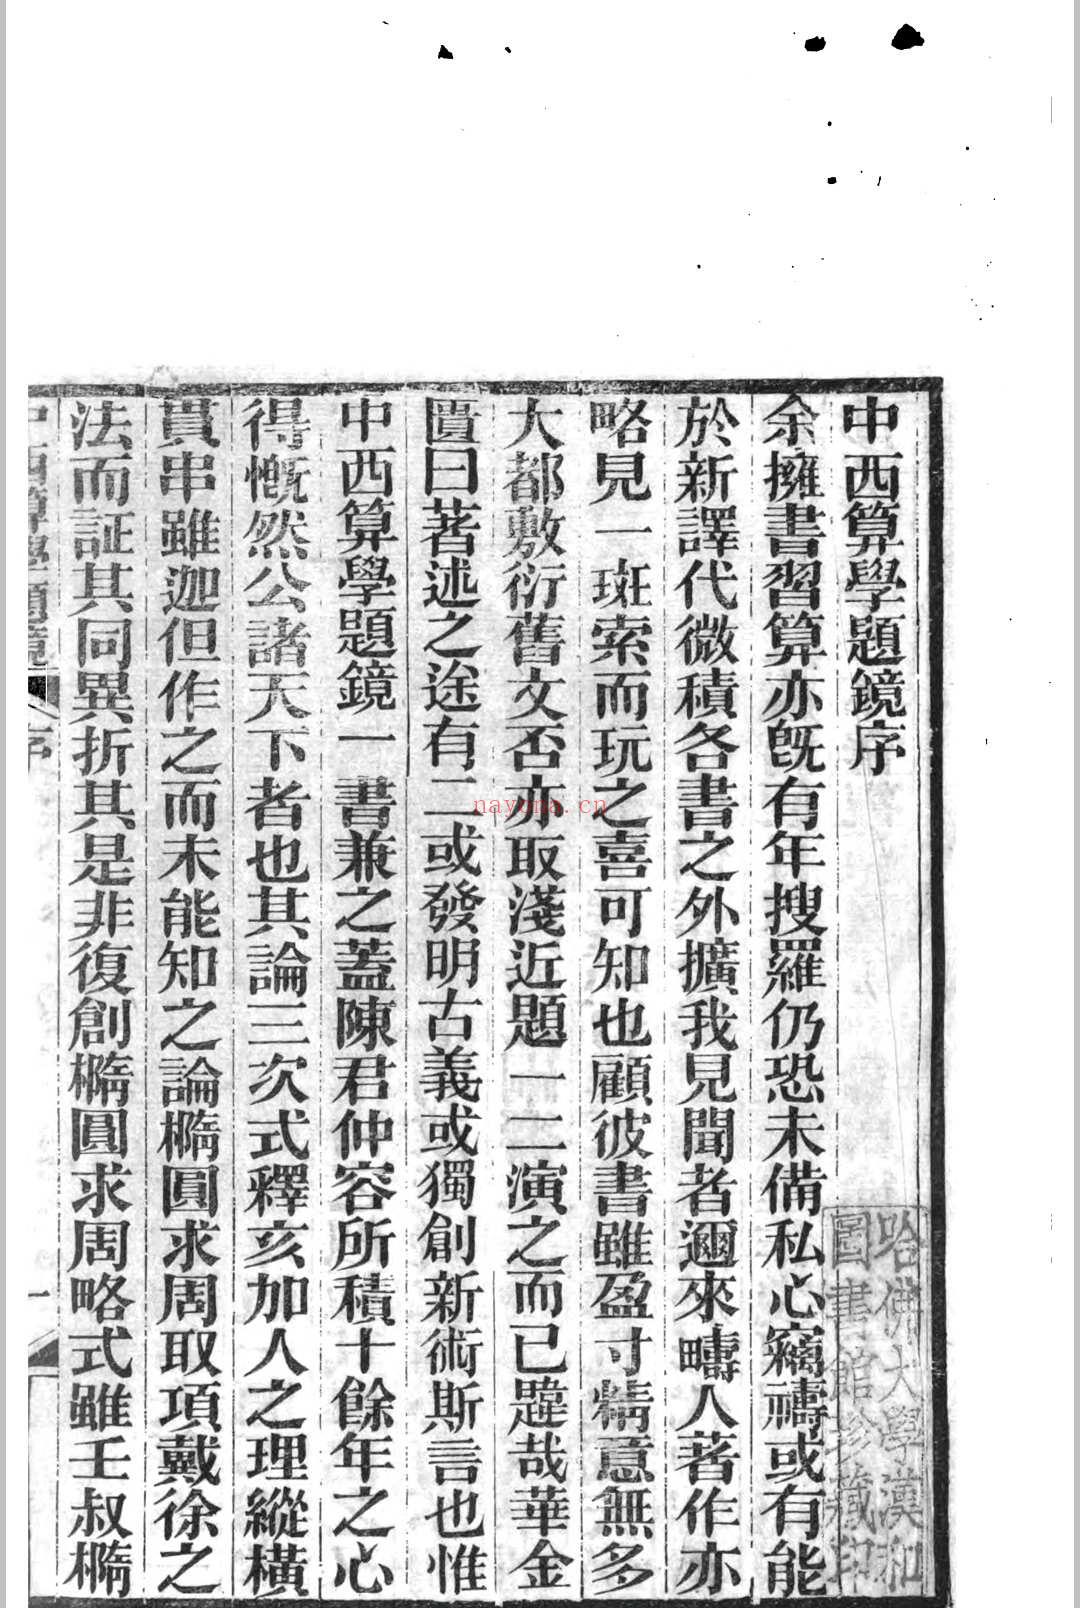 中西算學題鏡序
余擁書習算亦既有年搜羅仍恐未備私心竊禱或有能
於新譯代微積各書之外擴我見聞者邇來疇人著作亦
略見一斑索而玩之喜可知也顧彼書雖盈寸精意無多
大都敷衍舊文否亦取淺近題一二演之而已韙哉華金
匱曰著述之途有二或發明古義或獨創新術斯言也惟
中西算學題鏡一書兼之蓋陳君仲容所積十餘年之心
得慨然公諸天下者也其論三次式釋亥加人之理縱橫
貫串雖迦但作之而未能知之論橢圓求周取項戴徐之
法而証其同異折其是非復創橢圓求周略式雖壬叔橢
中西算學題鏡 序 一
哈佛大學漢和
圖書館珍藏印
nayona.cn